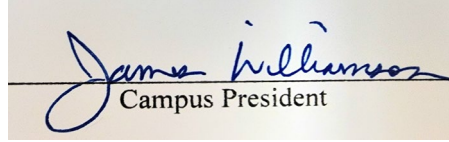 James Williamson
Campus President